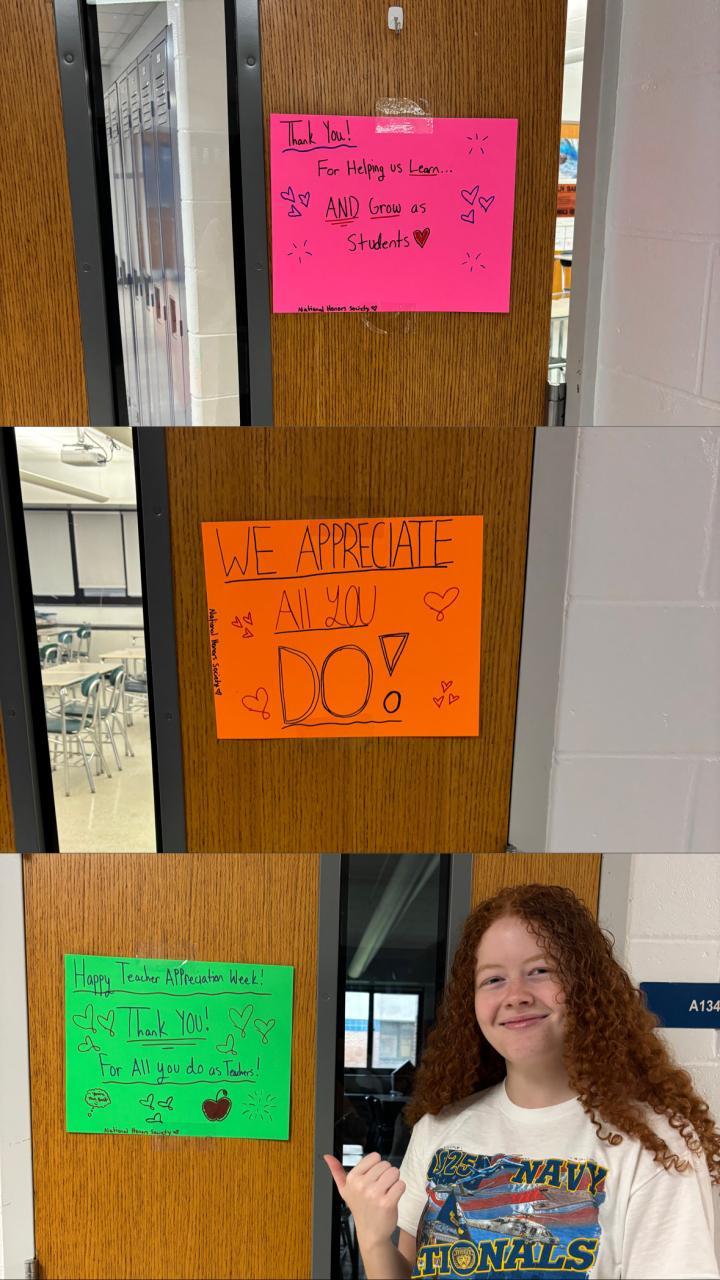 Thank You!
For Helping us Learn...
AND Grow as
Students
National Honors Society
WE APPRECIATE
All YOU
DO!
National Honors Society
Happy Teacher Appreciation Week!
Thank YOU!
For All you do as Teachers!
National Honors Society
A134
NAVY